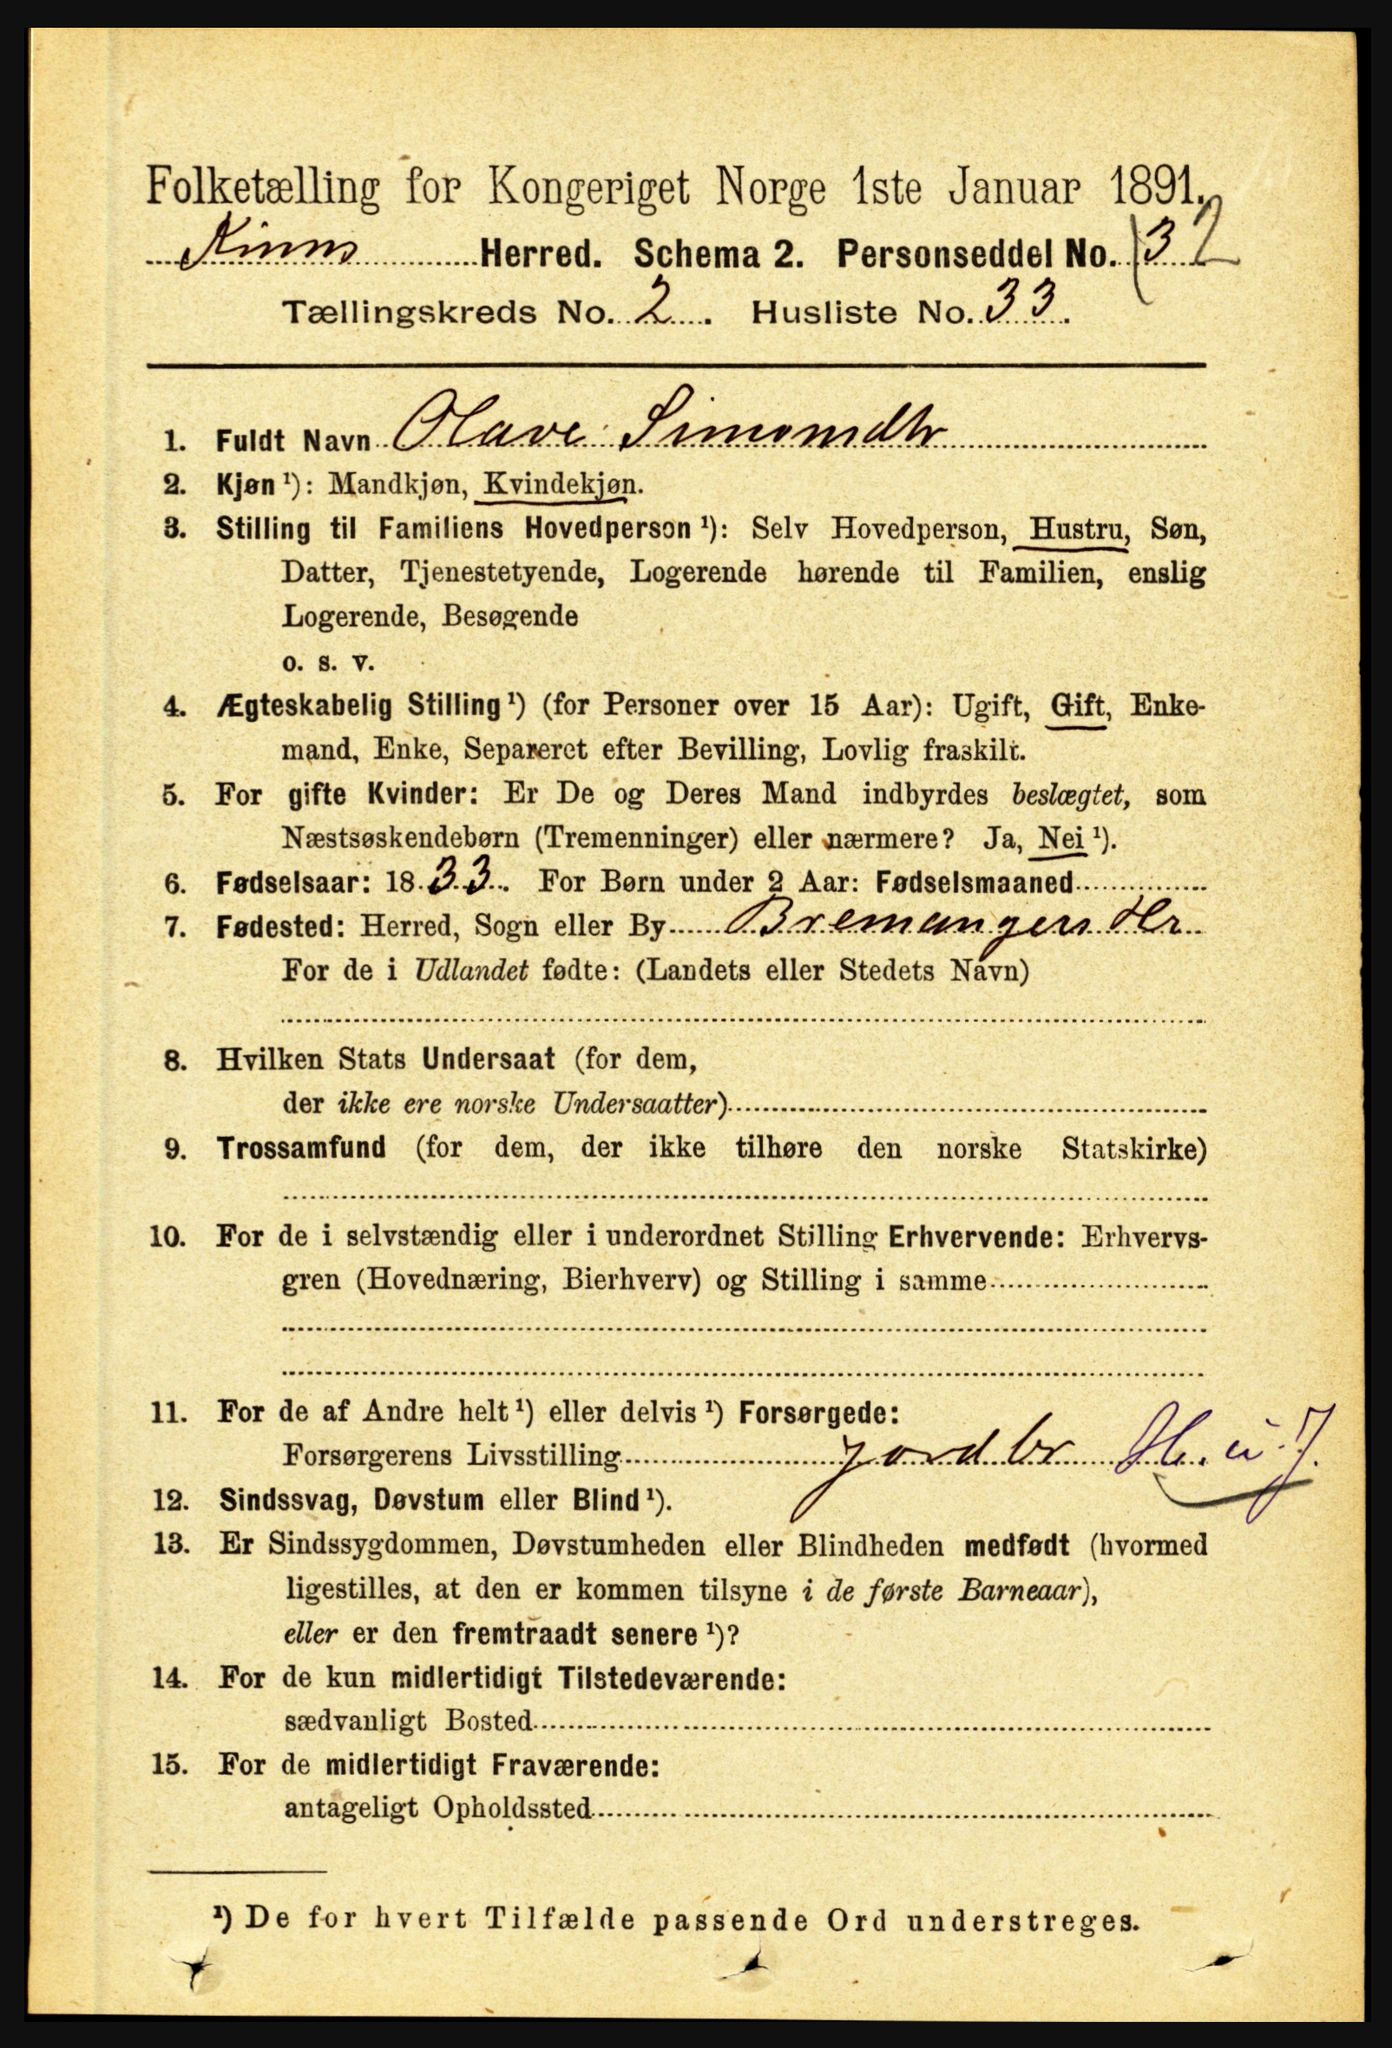 Folketælling for Kongeriget Norge 1ste Januar 1891.
Kinns Herred. Schema 2. Personseddel No. 32
Tællingskreds No. 2. Husliste No. 33.
1. Fuldt Navn Olave Simonsdtr
2. Kjøn ¹): Mandkjøn, Kvindekjøn.
3. Stilling til Familiens Hovedperson ¹): Selv Hovedperson, Hustru, Søn,
Datter, Tjenestetyende, Logerende hørende til Familien, enslig
Logerende, Besøgende
o. s. v.
4. Ægteskabelig Stilling ¹) (for Personer over 15 Aar): Ugift, Gift, Enke-
mand, Enke, Separeret efter Bevilling, Lovlig fraskilt.
5. For gifte Kvinder: Er De og Deres Mand indbyrdes beslægtet, som
Næstsøskendebørn (Tremenninger) eller nærmere? Ja, Nei ¹).
6. Fødselsaar: 1833. For Børn under 2 Aar: Fødselsmaaned
7. Fødested: Herred, Sogn eller By Bremangers Hr
For de i Udlandet fødte: (Landets eller Stedets Navn)
8. Hvilken Stats Undersaat (for dem,
der ikke ere norske Undersaatter)
9. Trossamfund (for dem, der ikke tilhøre den norske Statskirke)
10. For de i selvstændig eller i underordnet Stilling Erhvervende: Erhvervs-
gren (Hovednæring, Bierhverv) og Stilling i samme
11. For de af Andre helt ¹) eller delvis ¹) Forsørgede:
Forsørgerens Livsstilling jordbr
12. Sindssvag, Døvstum eller Blind ¹).
13. Er Sindssygdommen, Døvstumheden eller Blindheden medfødt (hvormed
ligestilles, at den er kommen tilsyne i de første Barneaar),
eller er den fremtraadt senere ¹)?
14. For de kun midlertidigt Tilstedeværende:
sædvanligt Bosted
15. For de midlertidigt Fraværende:
antageligt Opholdssted
¹) De for hvert Tilfælde passende Ord understreges.